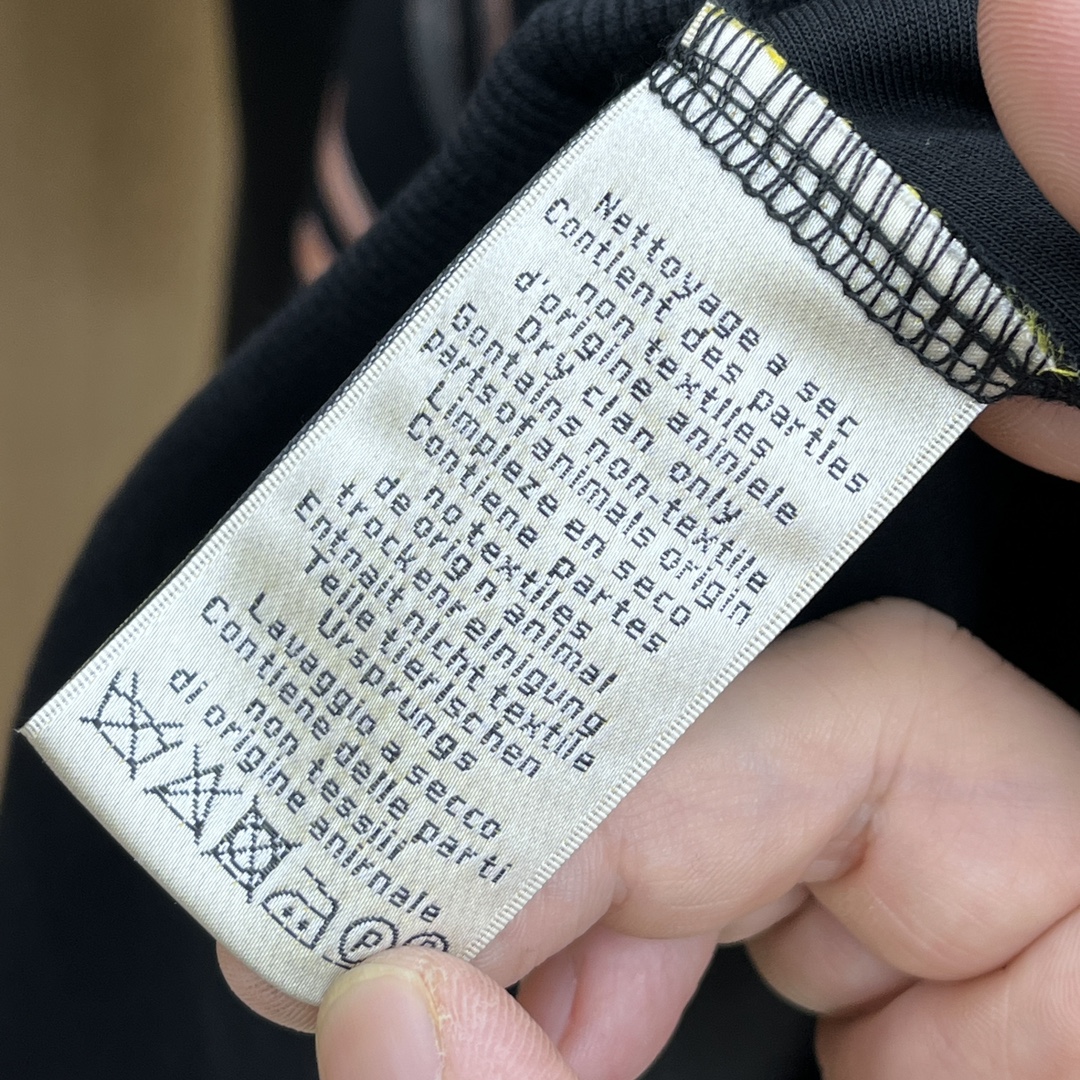 Nettoyage a sec
Contient des parties
non textiles
d'origine aniniele
Dry clan only
Gontains non-textile
partsofanimals origin
Limpieze en seco
Contiene partes
no textiles
de orign animal
trockenreinigung
Entnait nicht textile
Teile tierischen
Ursprungs
Lavaggio a secco
Contiene delle parti
non tessiii
di origine anirnale
P